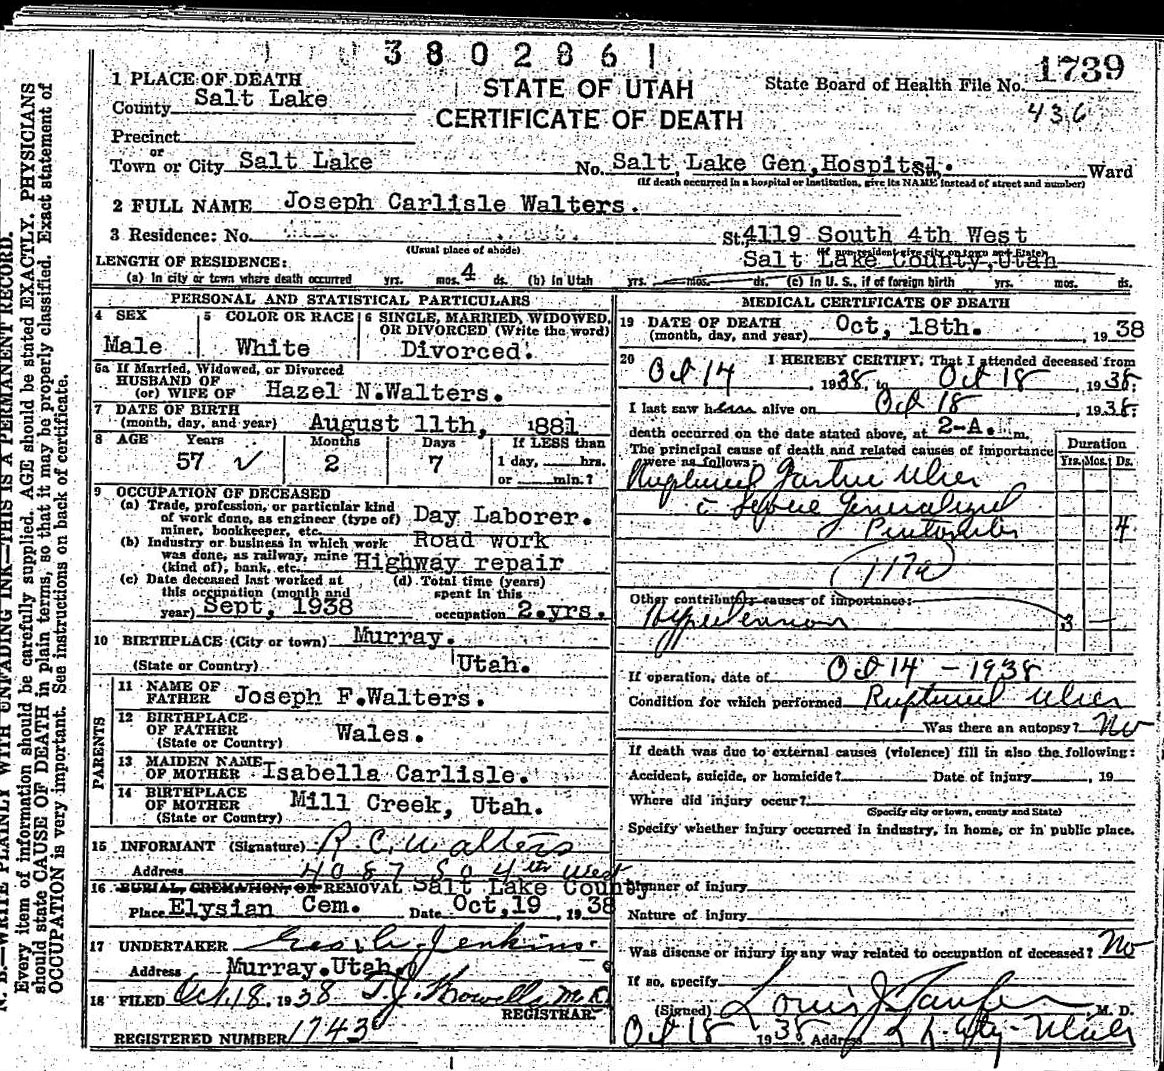 3802861
1739
1 PLACE OF DEATH
STATE OF UTAH
State Board of Health File No.
County Salt Lake
CERTIFICATE OF DEATH
436
Precinct
or
Town or City Salt Lake No. Salt Lake Gen, Hospital. Ward
(If death occurred in a hospital or institution, give its NAME instead of street and number)
2 FULL NAME Joseph Carlisle Walters.
3 Residence: No. St. 4119 South 4th West
(Usual place of abode)
Salt Lake County, Utah
LENGTH OF RESIDENCE:
(a) In city or town where death occurred yrs. mos. 4 ds. (b) In Utah yrs. mos. ds. (c) In U. S., if of foreign birth yrs. mos. ds.
PERSONAL AND STATISTICAL PARTICULARS
4 SEX
Male
5 COLOR OR RACE
White
6 SINGLE, MARRIED, WIDOWED, OR DIVORCED (Write the word)
Divorced.
6a If Married, Widowed, or Divorced
HUSBAND OF
(or) WIFE OF Hazel N.Walters.
7 DATE OF BIRTH
(month, day, and year) August 11th, 1881
8 AGE Years Months Days If LESS than
57 2 7 1 day, hrs.
or min.?
9 OCCUPATION OF DECEASED
(a) Trade, profession, or particular kind
of work done, as engineer (type of)
miner, bookkeeper, etc. Day Laborer.
(b) Industry or business in which work Road work
was done, as railway, mine
(kind of), bank, etc. Highway repair
(c) Date deceased last worked at
this occupation (month and
year) Sept, 1938
(d) Total time (years)
spent in this
occupation 2.yrs.
10 BIRTHPLACE (City or town) Murray.
(State or Country) Utah.
PARENTS
11 NAME OF
FATHER Joseph F.Walters.
12 BIRTHPLACE
OF FATHER Wales.
(State or Country)
13 MAIDEN NAME
OF MOTHER Isabella Carlisle.
14 BIRTHPLACE
OF MOTHER Mill Creek, Utah.
(State or Country)
15 INFORMANT (Signature) R. C. Walters
Address 4087 So 4th West
16 BURIAL, CREMATION, OR REMOVAL Salt Lake County
Place Elysian Cem. Date Oct,19 , 1938
17 UNDERTAKER Jenkins
Address Murray.Utah.
18 FILED Oct.18, 1938
REGISTRAR
REGISTERED NUMBER 1743
MEDICAL CERTIFICATE OF DEATH
19 DATE OF DEATH
(month, day, and year) Oct, 18th. , 1938
20 I HEREBY CERTIFY, That I attended deceased from
Oct 14 , 1938, to Oct 18 , 1938;
I last saw him alive on Oct 18 , 1938;
death occurred on the date stated above, at 2-A. m.
The principal cause of death and related causes of importance
were as follows:
Duration
Yrs. Mos. Ds.
Ruptured Gastric Ulcer
c̄ Septic Generalized
Peritonitis 4
117a
Other contributory causes of importance:
Hypertension 3 —
If operation, date of Oct 14 - 1938
Condition for which performed Ruptured Ulcer
Was there an autopsy? No
If death was due to external causes (violence) fill in also the following:
Accident, suicide, or homicide? Date of injury , 19
Where did injury occur?
(Specify city or town, county and State)
Specify whether injury occurred in industry, in home, or in public place.
Manner of injury
Nature of injury
Was disease or injury in any way related to occupation of deceased? No
If so, specify
(Signed) Louis J. Taufer M. D.
Oct 18 1938 Address
N. B.—WRITE PLAINLY WITH UNFADING INK—THIS IS A PERMANENT RECORD.
Every item of information should be carefully supplied. AGE should be stated EXACTLY. PHYSICIANS
should state CAUSE OF DEATH in plain terms, so that it may be properly classified. Exact statement of
OCCUPATION is very important. See instructions on back of certificate.